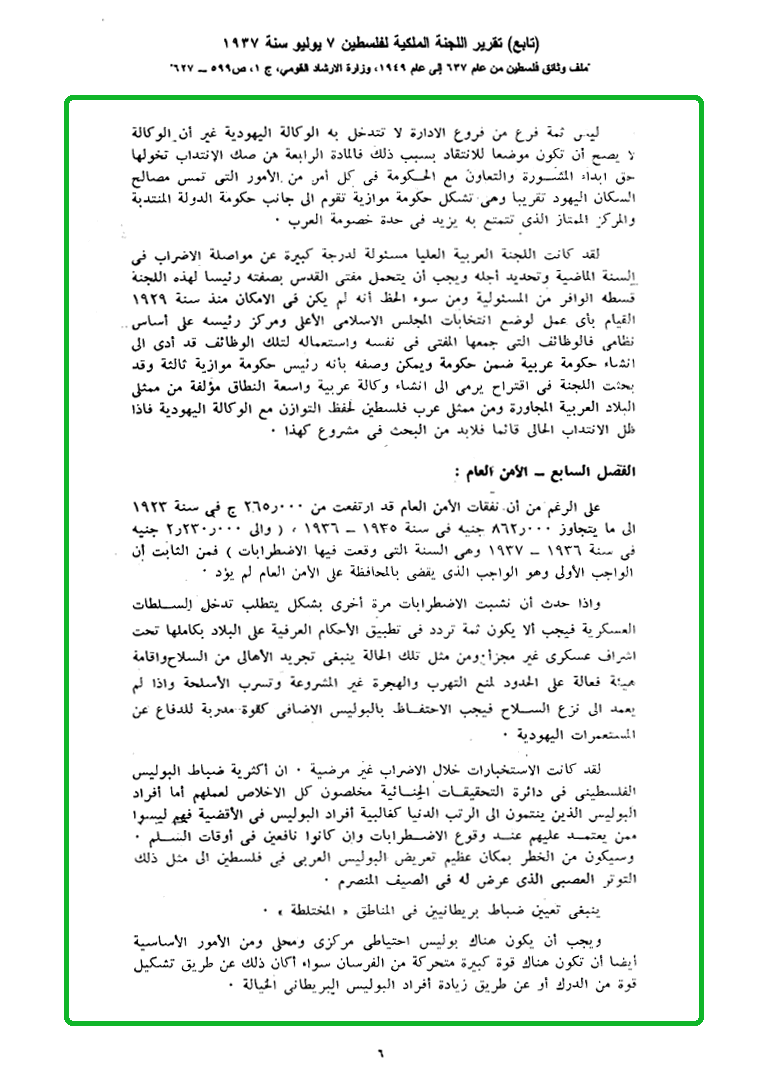 (تابع) تقرير اللجنة الملكية لفلسطين ٧ يوليو سنة ١٩٣٧
"ملف وثائق فلسطين من عام ٦٣٧ إلى عام ١٩٤٩، وزارة الارشاد القومي، ج ١، ص ٥٩٩ – ٦٢٧"
ليس ثمة فرع من فروع الادارة لا تتدخل به الوكالة اليهودية غير أن الوكالة
لا يصح أن تكون موضعا للانتقاد بسبب ذلك فالمادة الرابعة من صك الانتداب تخولها
حق ابداء المشورة والتعاون مع الحكومة فى كل أمر من الأمور التى تمس مصالح
السكان اليهود تقريبا وهى تشكل حكومة موازية تقوم الى جانب حكومة الدولة المنتدبة
والمركز الممتاز الذى تتمتع به يزيد فى حدة خصومة العرب ٠
لقد كانت اللجنة العربية العليا مسئولة لدرجة كبيرة عن مواصلة الاضراب فى
السنة الماضية وتحديد أجله ويجب أن يتحمل مفتى القدس بصفته رئيسا لهذه اللجنة
قسطه الوافر من المسئولية ومن سوء الحظ أنه لم يكن فى الامكان منذ سنة ١٩٢٩
القيام بأى عمل لوضع انتخابات المجلس الاسلامى الأعلى ومركز رئيسه على أساس
نظامى فالوظائف التى جمعها المفتى فى نفسه واستعماله لتلك الوظائف قد أدى الى
انشاء حكومة عربية ضمن حكومة ويمكن وصفه بأنه رئيس حكومة موازية ثالثة وقد
بحثت اللجنة فى اقتراح يرمى الى انشاء وكالة عربية واسعة النطاق مؤلفة من ممثلى
البلاد العربية المجاورة ومن ممثلى عرب فلسطين لحفظ التوازن مع الوكالة اليهودية فاذا
ظل الانتداب الحالى قائما فلابد من البحث فى مشروع كهذا ٠
الفصل السابع – الأمن العام :
على الرغم من أن نفقات الأمن العام قد ارتفعت من ٢٦٥٫٠٠٠ ج فى سنة ١٩٢٣
الى ما يتجاوز ٨٦٢٫٠٠٠ جنيه فى سنة ١٩٣٥ – ١٩٣٦ ، ( والى ٢٫٢٣٠٫٠٠٠ جنيه
فى سنة ١٩٣٦ – ١٩٣٧ وهى السنة التى وقعت فيها الاضطرابات ) فمن الثابت أن
الواجب الأولى وهو الواجب الذى يقضى بالمحافظة على الأمن العام لم يؤد ٠
واذا حدث أن نشبت الاضطرابات مرة أخرى بشكل يتطلب تدخل السلطات
العسكرية فيجب ألا يكون ثمة تردد فى تطبيق الأحكام العرفية على البلاد بكاملها تحت
اشراف عسكرى غير مجزأ ومن مثل تلك الحالة ينبغى تجريد الأهالى من السلاح واقامة
هيئة فعالة على الحدود لمنع التهرب والهجرة غير المشروعة وتسرب الأسلحة واذا لم
يعمد الى نزع السلاح فيجب الاحتفاظ بالبوليس الاضافى كقوة مدربة للدفاع عن
المستعمرات اليهودية ٠
لقد كانت الاستخبارات خلال الاضراب غير مرضية ٠ ان أكثرية ضباط البوليس
الفلسطينى فى دائرة التحقيقات الجنائية مخلصون كل الاخلاص لعملهم أما أفراد
البوليس الذين ينتمون الى الرتب الدنيا كغالبية أفراد البوليس فى الأقضية فهم ليسوا
ممن يعتمد عليهم عند وقوع الاضطرابات وان كانوا نافعين فى أوقات السلم ٠
وسيكون من الخطر بمكان عظيم تعريض البوليس العربى فى فلسطين الى مثل ذلك
التوتر العصبى الذى عرض له فى الصيف المنصرم ٠
ينبغى تعيين ضباط بريطانيين فى المناطق « المختلطة » ٠
ويجب أن يكون هناك بوليس احتياطى مركزى ومحلى ومن الأمور الأساسية
أيضا أن تكون هناك قوة كبيرة متحركة من الفرسان سواء أكان ذلك عن طريق تشكيل
قوة من الدرك أو عن طريق زيادة أفراد البوليس البريطانى الخيالة ٠
٦